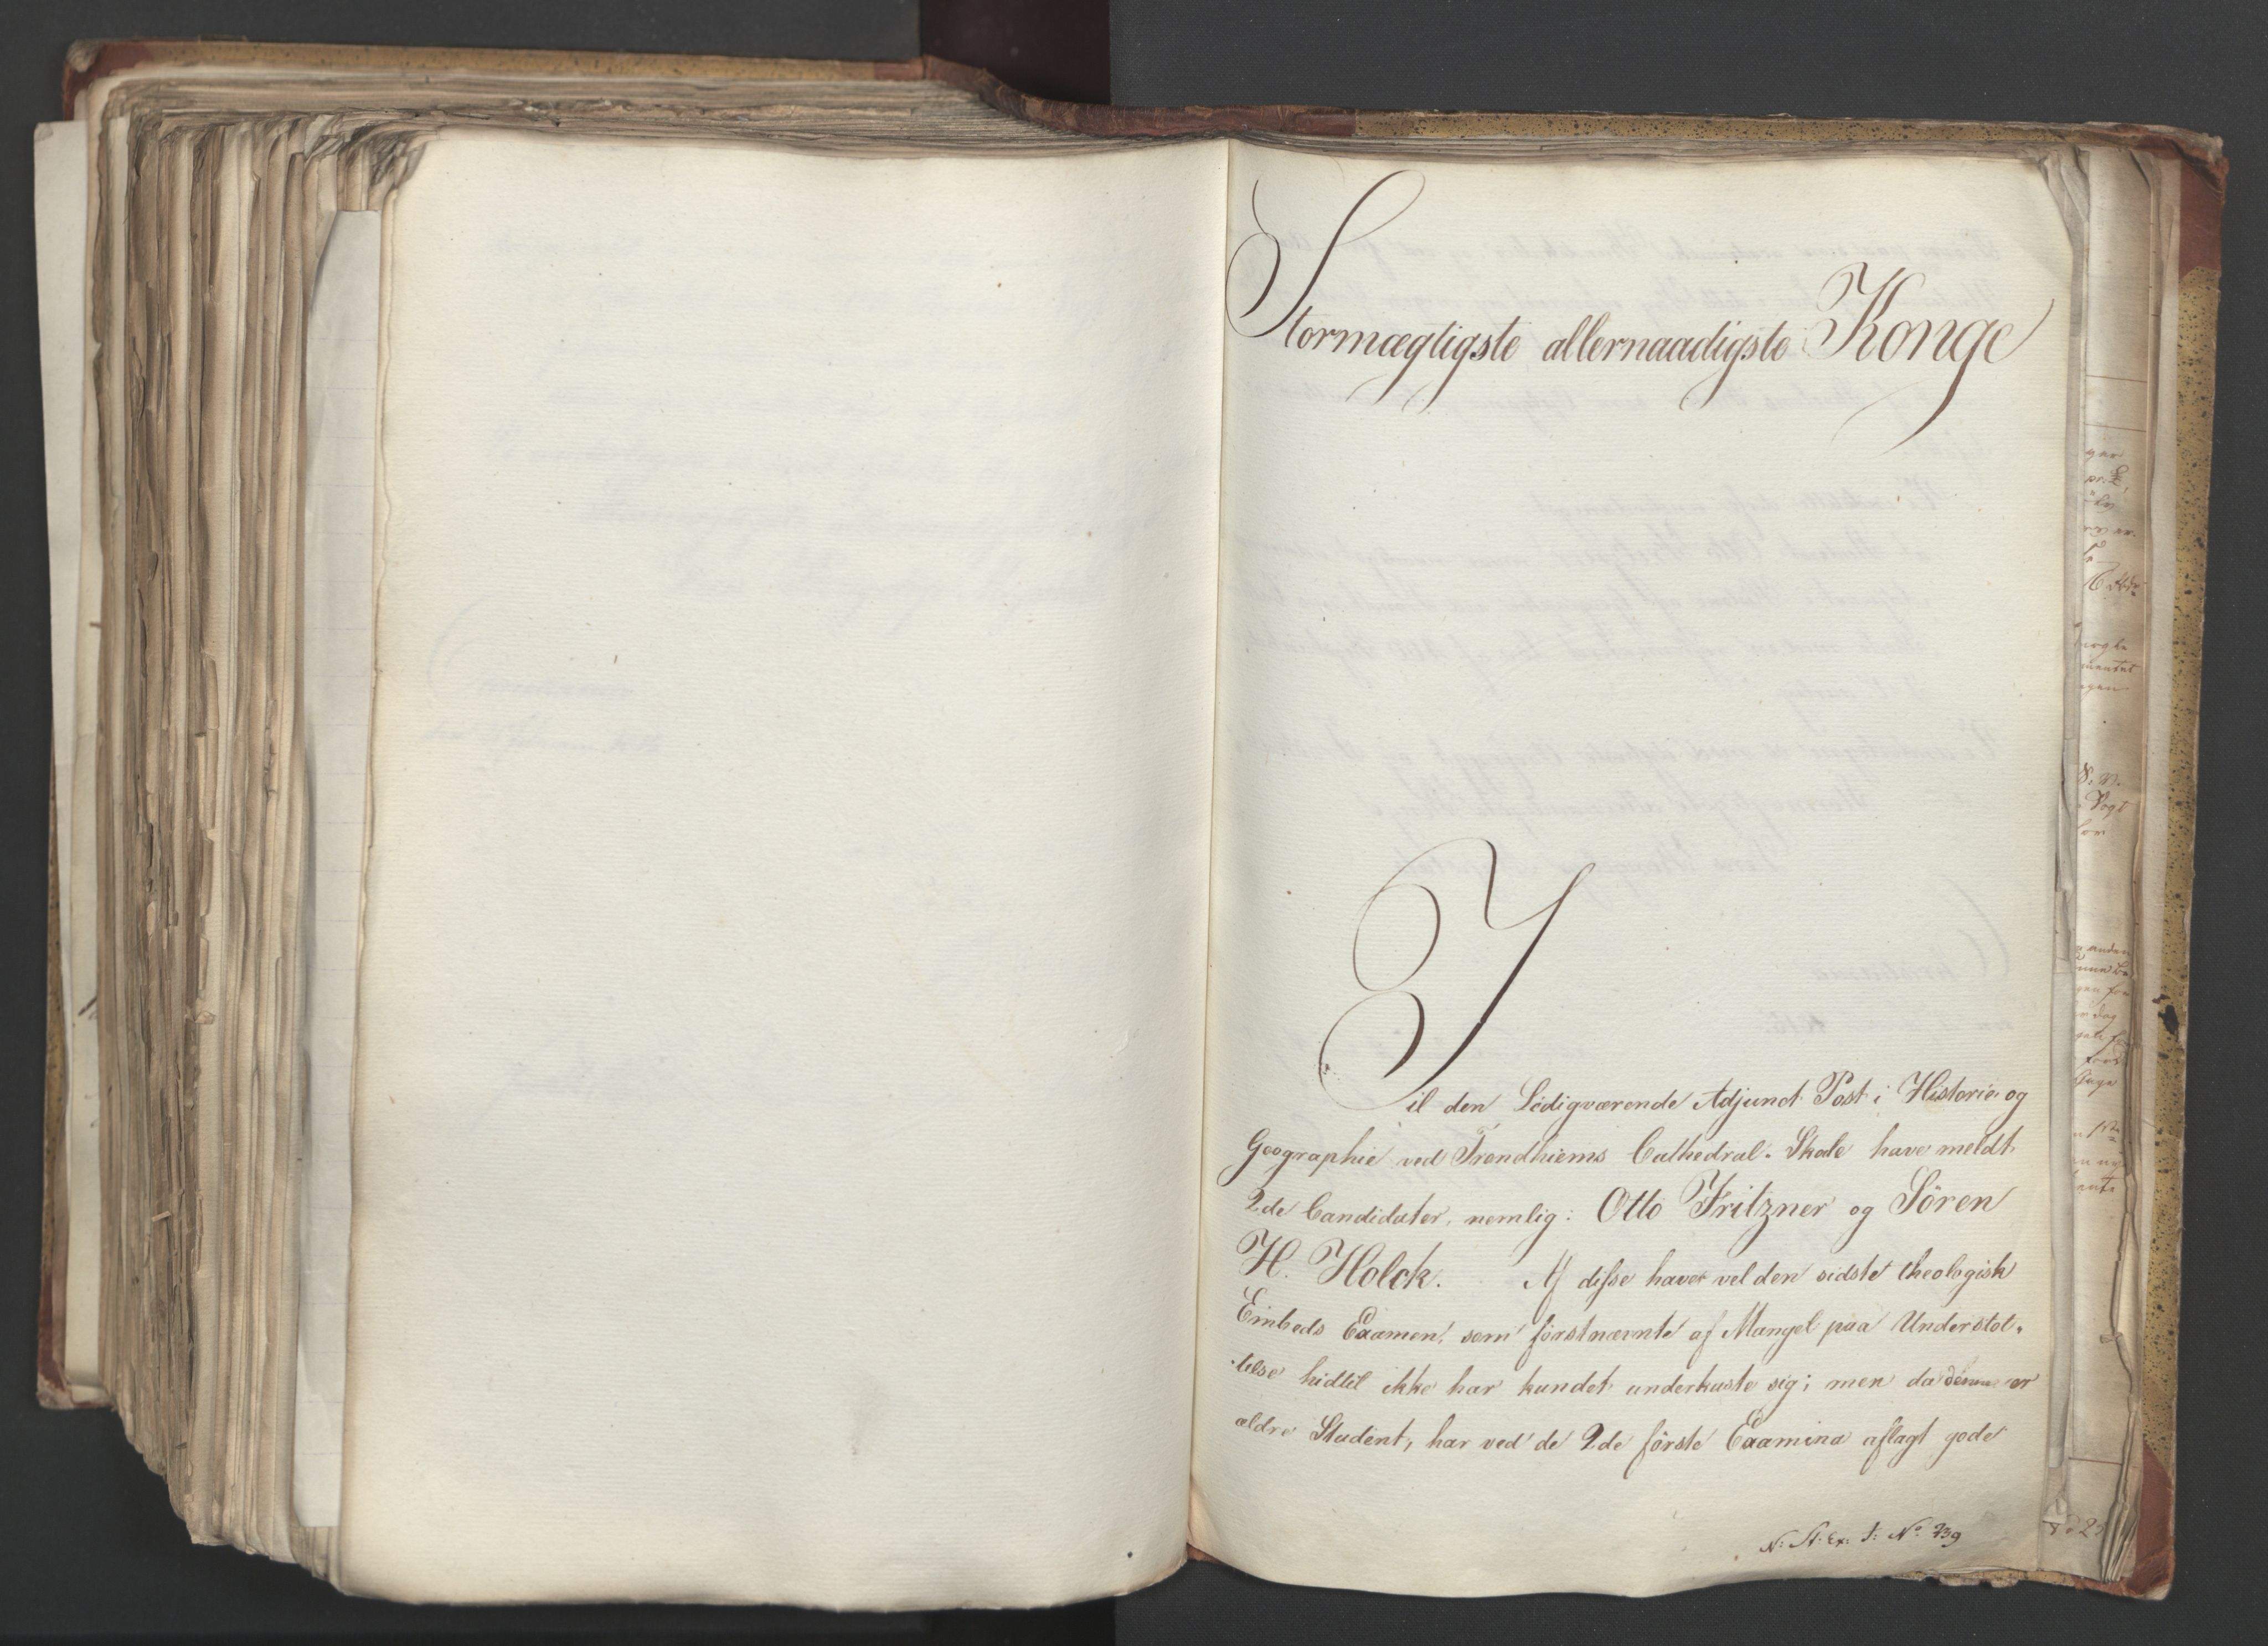 Stormægtigste allernaadigste Konge
Til den Ledigværende Adjunct Post i Historie og
Geographie ved Trondhiems Cathedral-Skole have meldt
2de Candidater, nemlig: Otto Fritzner og Sören
H. Holck. Af disse haver vel den sidste theologisk
Embeds Examen, som förstnævnte af Mangel paa Understöt-
-telse hidtil ikke har kundet underkaste sig; men da denne er
ældre Student, har ved de 2de förste Examina aflagt gode
N: St: Ex: J: No 739